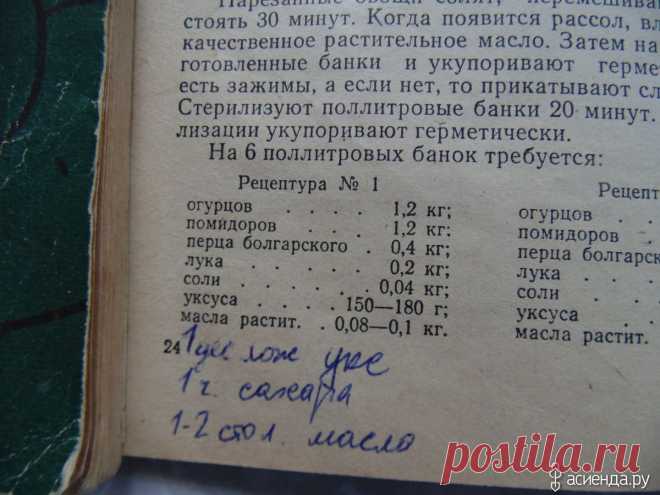 Нарезанные овощи солят, перемешиваю
стоять 30 минут. Когда появится рассол, вл
качественное растительное масло. Затем на
готовленные банки и укупоривают гермет
есть зажимы, а если нет, то прикатывают сл
Стерилизуют поллитровые банки 20 минут.
лизации укупоривают герметически.
На 6 поллитровых банок требуется:
Рецептура № 1 Рецепт
огурцов . . . . 1,2 кг; огурцов . .
помидоров . . . 1,2 кг; помидоров . .
перца болгарского . 0,4 кг; перца болгар
лука . . . . . 0,2 кг; лука . . .
соли . . . . . 0,04 кг; соли . . .
уксуса . . . . 150—180 г; уксуса . .
масла растит. . 0,08—0,1 кг. масла растит.
24
1 лож укс
1 ч. сахара
1-2 стол. масло
postila.ru
асиенда.ру